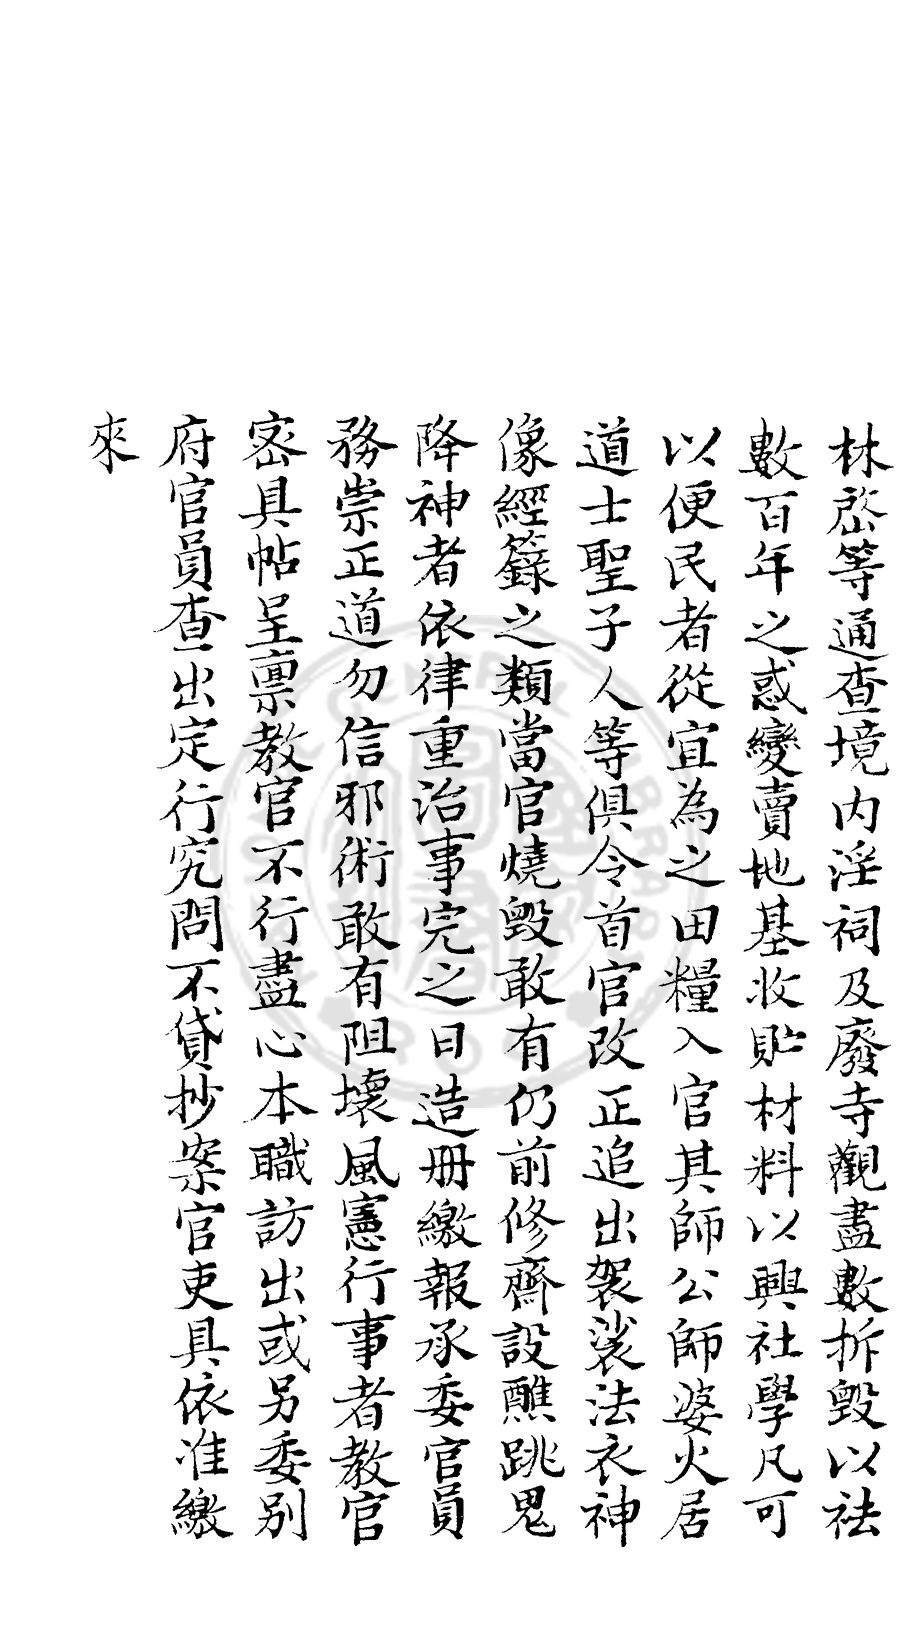 林啓等通查境内淫祠及廢寺觀盡數拆毀以祛
數百年之惑變賣地基收貯材料以興社學凡可
以便民者從宜為之田糧入官其師公師婆火居
道士聖子人等俱令首官改正追出袈裟法衣神
像經籙之類當官燒毀敢有仍前修齋設醮跳鬼
降神者依律重治事完之日造冊繳報承委官員
務崇正道勿信邪術敢有阻壞風憲行事者教官
密具帖呈稟教官不行盡心本職訪出或另委別
府官員查出定行究問不貸抄案官吏具依准繳
來